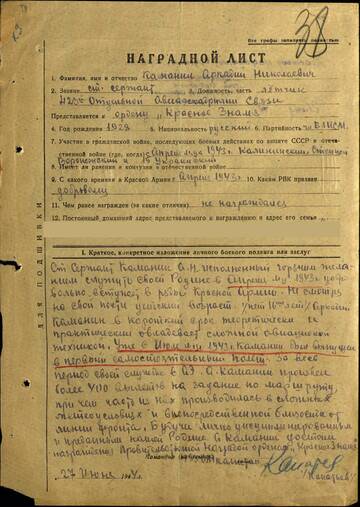 Все графы заполнять полностью
38
НАГРАДНОЙ ЛИСТ
1. Фамилия, имя и отчество Каманин Аркадий Николаевич
2. Звание ст. сержант 3. Должность, часть летчик
423й Отдельной Авиаэскадрильи Связи
Представляется к ордену „Красное Знамя“
4. Год рождения 1928 5. Национальность русский 6. Партийность ВЛКСМ
7. Участие в гражданской войне, последующих боевых действиях по защите СССР и отечественной
войне (где, когда) с Апреля м-ца 1943г. Калининский, Степной
Воронежский 1й Украинский
8. Имеет ли ранения и контузии в отечественной войне
9. С какого времени в Красной Армии с Апреля 1943г. 10. Каким РВК призван
добровольно
11. Чем ранее награжден (за какие отличия) не награждался
12. Постоянный домашний адрес представляемого к награждению и адрес его семьи
ДЛЯ ПОДШИВКИ
I. Краткое, конкретное изложение личного боевого подвига или заслуг
Ст. Сержант Каманин А.Н. исполненный горячим жела-
нием служить своей Родине в Апреле м-це 1943г. добро-
вольно вступает в ряды Красной Армии. Не смотря
на свой почти детский возраст Аркадий
Каманин в короткий срок теоретически и
практически овладевает сложной авиационной
техникой. Уже в Июле м-це Каманин был выпущен
в первый самостоятельный полет. За весь
период своей службы в АЭ А. Каманин произвел
более 400 вылетов на задание по маршруту,
при чем часть из них производилась в сложных
метеоусловиях и в непосредственной близости от
линии фронта. Будучи лично дисциплинированным
и преданным нашей Родине А. Каманин достоин
награждения Правительственной Наградой орденом „Красное Знамя“
капитан
27 Июня